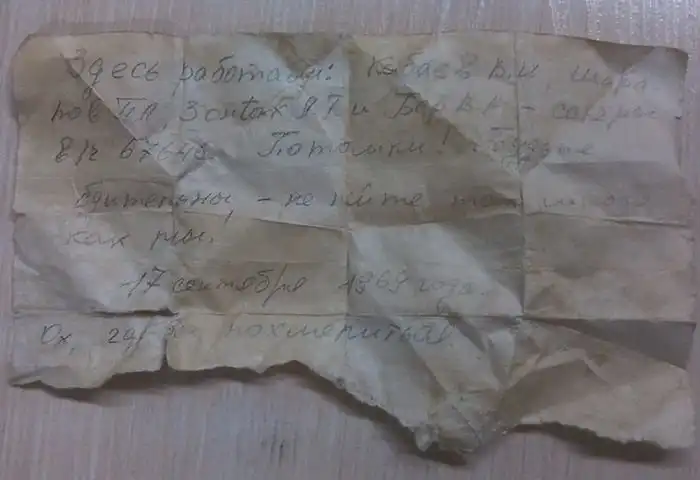 Здесь работали: Кабаев В.И, Шара
пов П П Я Т и Бор В А -
в/ч Потомки! Будьте
бдительны, - не пейте так много
как мы.
17 сентября 1969 года.
Ох, похмелиться